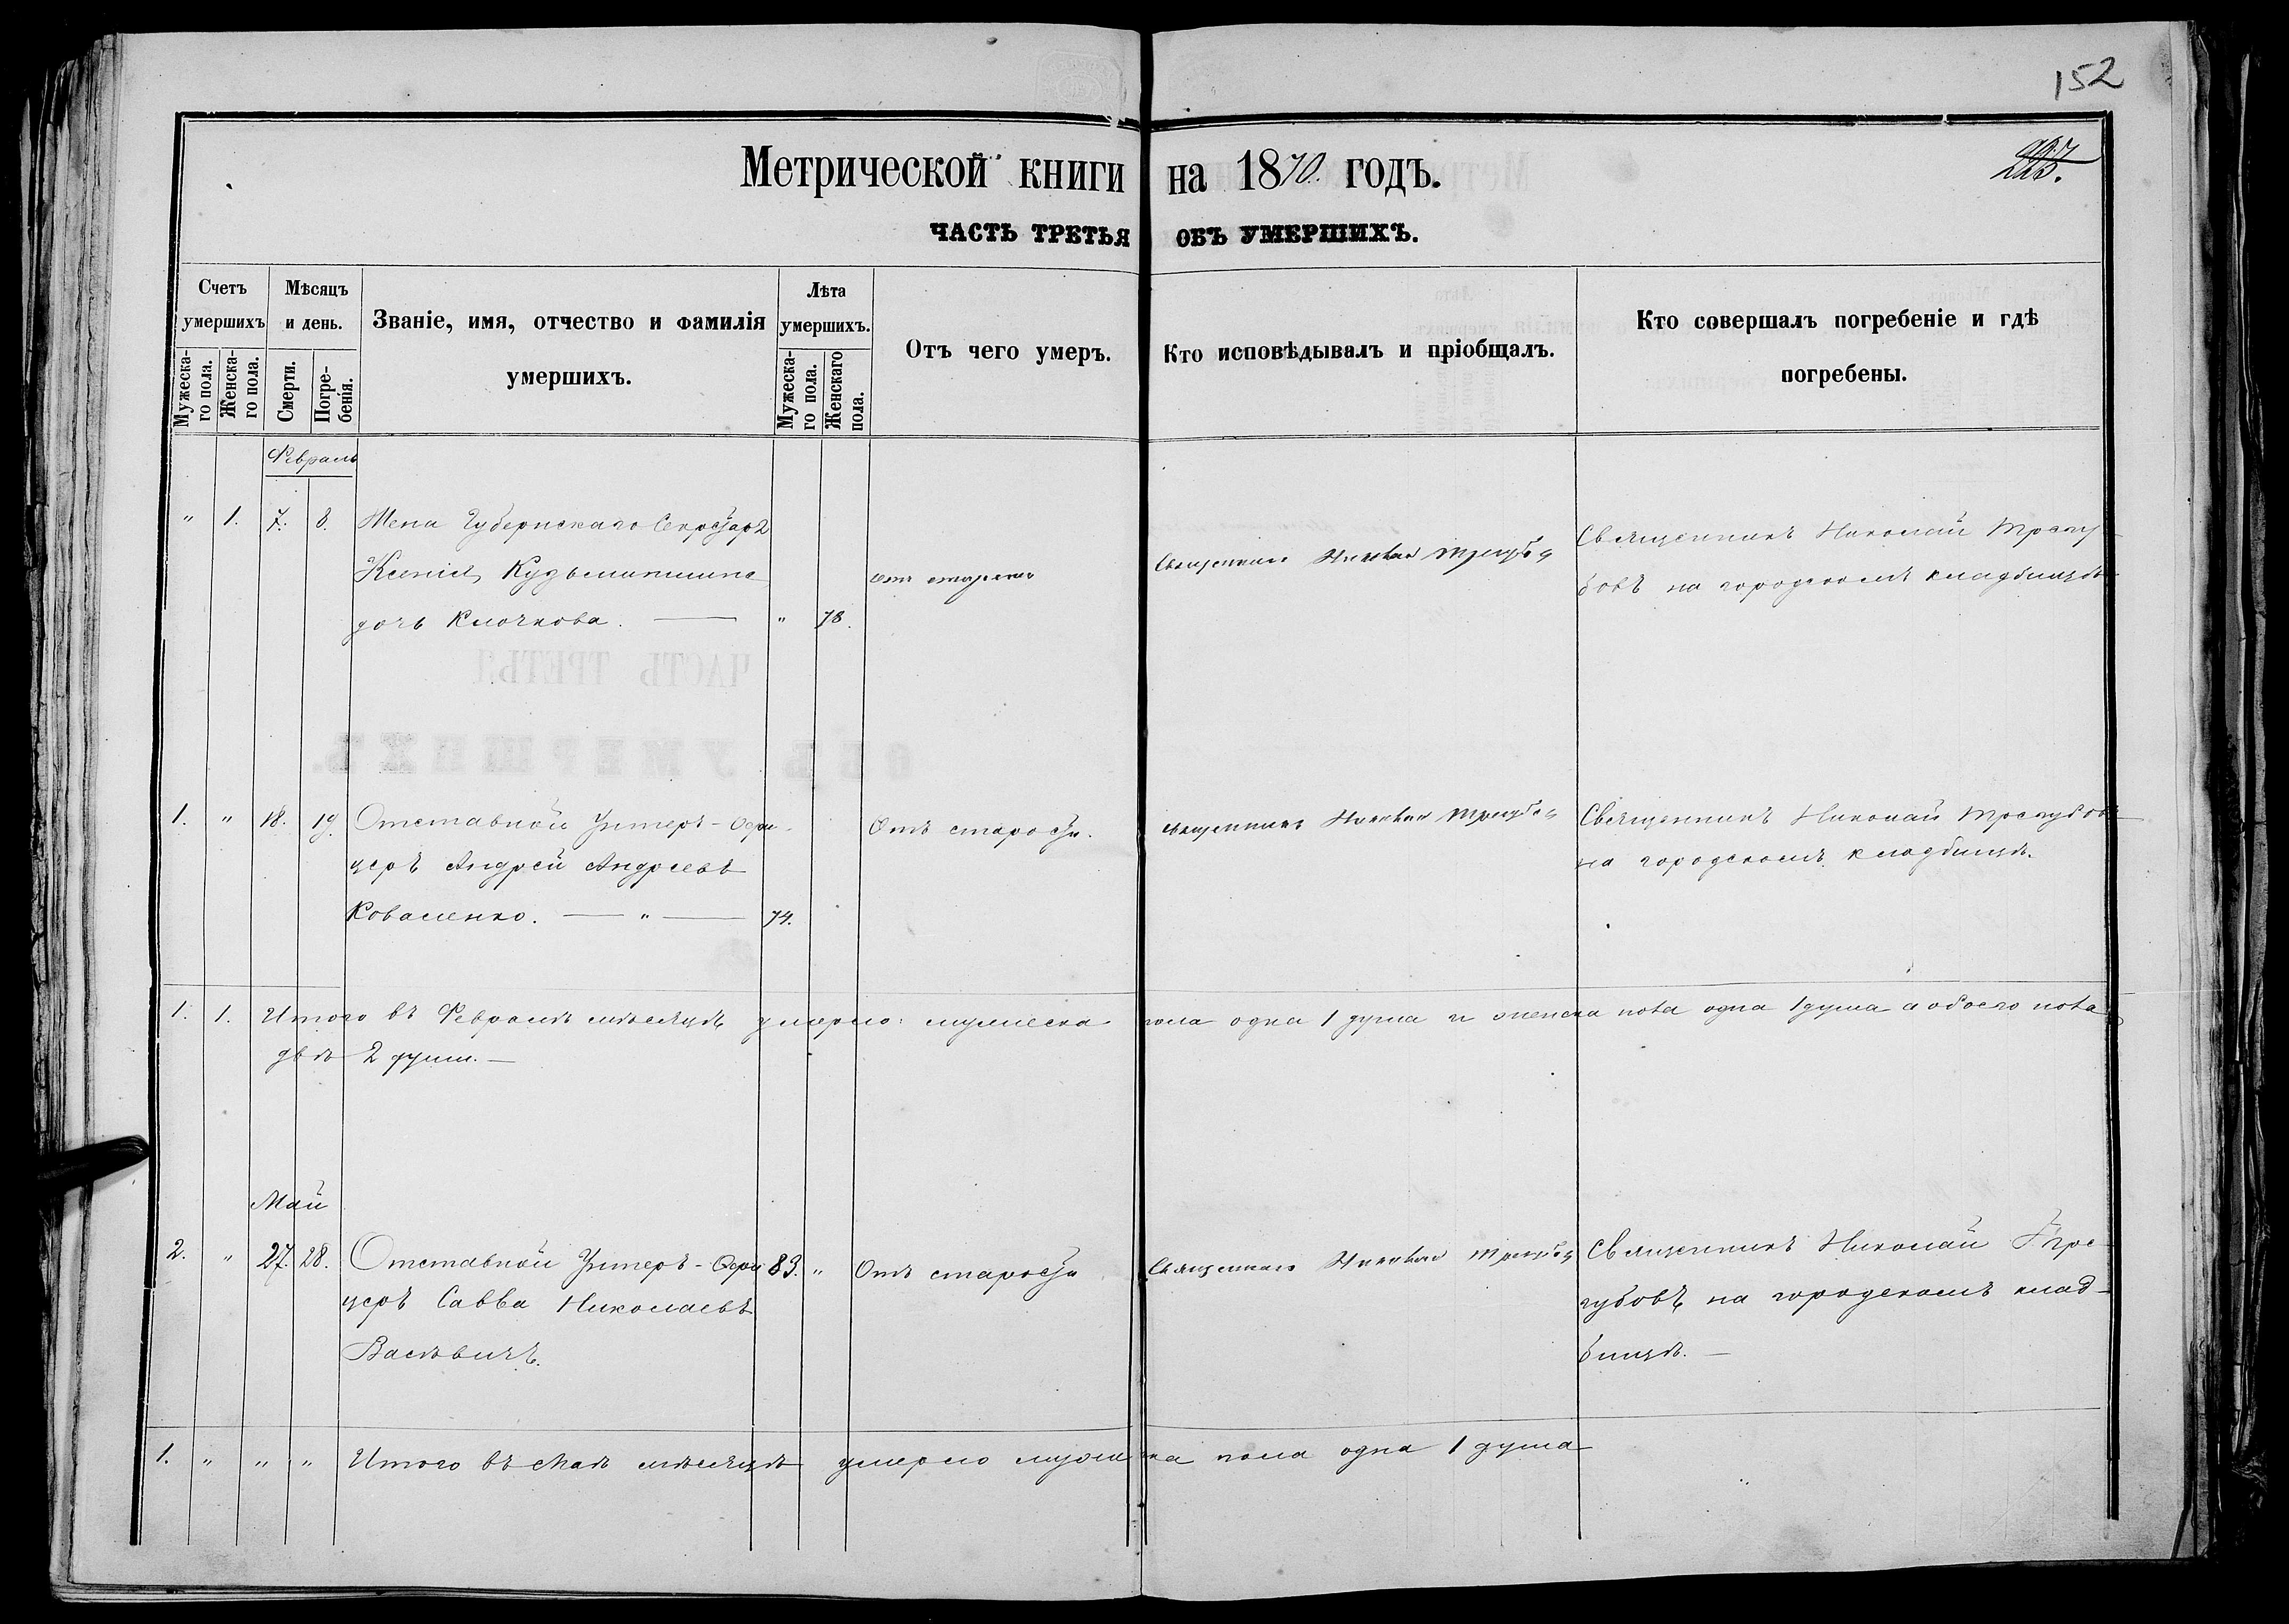 152
Метрической книги на 1870. годъ.
ЧАСТЬ ТРЕТЬЯ ОБЪ УМЕРШИХЪ.
Счетъ умершихъ
Мѣсяцъ и день.
Званіе, имя, отчество и фамилія умершихъ.
Лѣта умершихъ.
Отъ чего умеръ.
Кто исповѣдывалъ и пріобщалъ.
Кто совершалъ погребеніе и гдѣ погребены.
Мужеска-го пола.
Женска-го пола.
Смерти.
Погре-бенія.
Мужеска-го пола.
Женскаго пола.
Февраль
" 1. 7. 8. Жена Губернскаго Секретаря
Ксенія Кудьминишна
дочь Клочкова. — " 78.
отъ старости
Священникъ Николай Трегубов
Священникъ Николай Трегу-
бовъ на городскомъ кладбищѣ
1. " 18. 19. Отставной Унтеръ-Офи-
церъ Андрей Андреевъ
Коваленко. — " — 74.
Отъ старости.
Священникъ Николай Трегубов
Священникъ Николай Трегубовъ
на городскомъ кладбищѣ.
1. 1. Итого въ Февралѣ мѣсяцѣ умерло: мужеска пола одна 1 душа и женска пола одна 1 душа а обоего пола
двѣ 2 души. —
Май
2. " 27. 28. Отставной Унтеръ-Офи 83. "
церъ Савва Николаевъ
Василвичъ.
Отъ старости
Священникъ Николай Трегубов
Священникъ Николай Тре-
губовъ на городскомъ клад-
бищѣ. —
1. " " " Итого въ Маѣ мѣсяцѣ умерло мужеска пола одна 1 душа